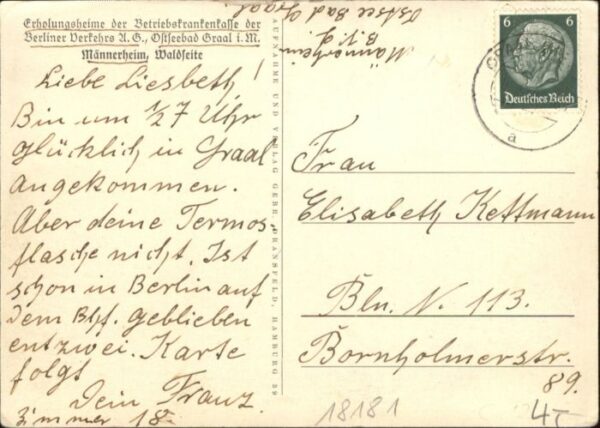 Erholungsheime der Betriebskrankenkasse der
Berliner Verkehrs A. G., Ostseebad Graal i. M.
Männerheim, Waldseite
Liebe Liesbeth!
Bin um ½7 Uhr
glücklich in Graal
angekommen.
Aber deine Termos,
flasche nicht. Ist
schon in Berlin auf
dem Bhf. geblieben
entzwei. Karte
folgt
Dein Franz.
Zimmer 18.
AUFNAHME UND VERLAG GEBR. DRANSFELD, HAMBURG 39
Ostsee Bad Graal
Männerheim
6 6
Deutsches Reich
a
Frau
Elisabeth Kettmann
Bln. N. 113.
Bornholmerstr.
89.
18181